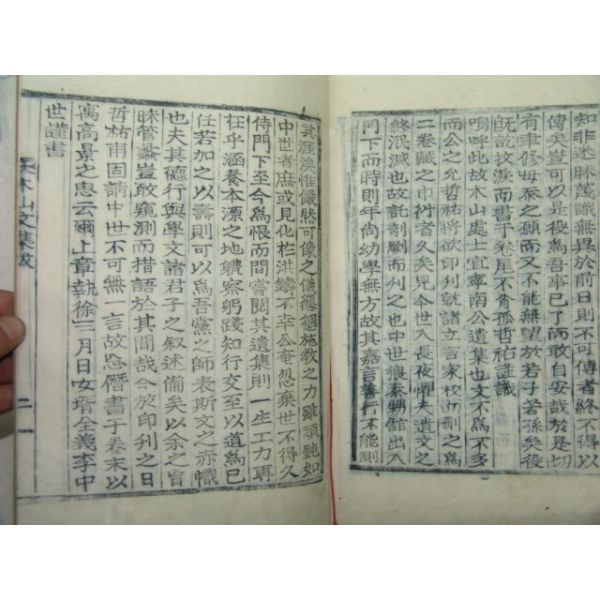 知非述昧蔑識無異於前日則不可傳者終不得以
傳矣豈可以是役爲吾事已了而敢自安哉於是切
有聿修毋忝之願而又不能無望於若子若孫矣役
旣訖抆淚而書于卷尾不肖孤哲祐謹識
嗚呼此故木山處士宜寧南公遺集也文不爲不多
而公之允哲祐將欲印刋就諸立言家校而刪之爲
二卷藏之巾衍者久矣見今世入長夜懼夫遺文之
終泯滅也故託剞劂而刋之也中世猥忝甥館出入
門下而時則年尚幼學無方故其嘉言善行不能測
其涯涘惟儼然可像之儀懇懇施敎之力雖頑鈍如
中世者庶或見化於洪鑄不幸公奄忽棄世不得久
侍門下至今爲恨而間嘗閱其遺集則一生工力專
在乎涵養本源之地體察躬踐知行交至以道爲已
任若加之以壽則可以爲吾黨之師表斯文之赤幟
也夫其德行與學文諸君子之叙述備矣以余之盲
昧管蠡豈敢窺測而措語於其間哉今於印刋之日
哲祐甫固請中世不可無一言故忘僭書于卷末以
寓高景之忠云爾上章執徐三月日女壻全義李中
世謹書
木山文集跋
二